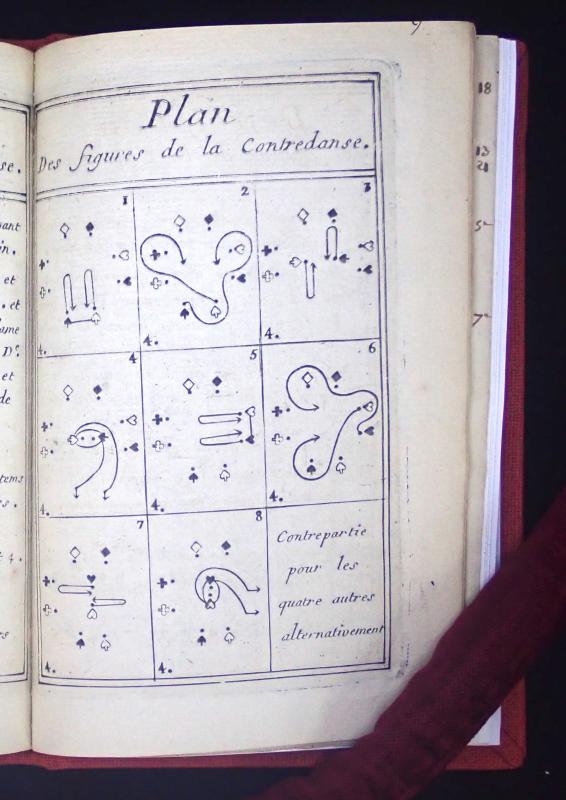 9
Plan
Des figures de la Contredanse.
1
2
3
4.
4.
4.
4
5
6
4.
4.
4.
7
8
4.
4.
Contrepartie
pour les
quatre autres
alternativement
se.
vant
in.
et
. et
ame
De.
et
de
tems
s.
t 4.
es
18
13
21
5
7